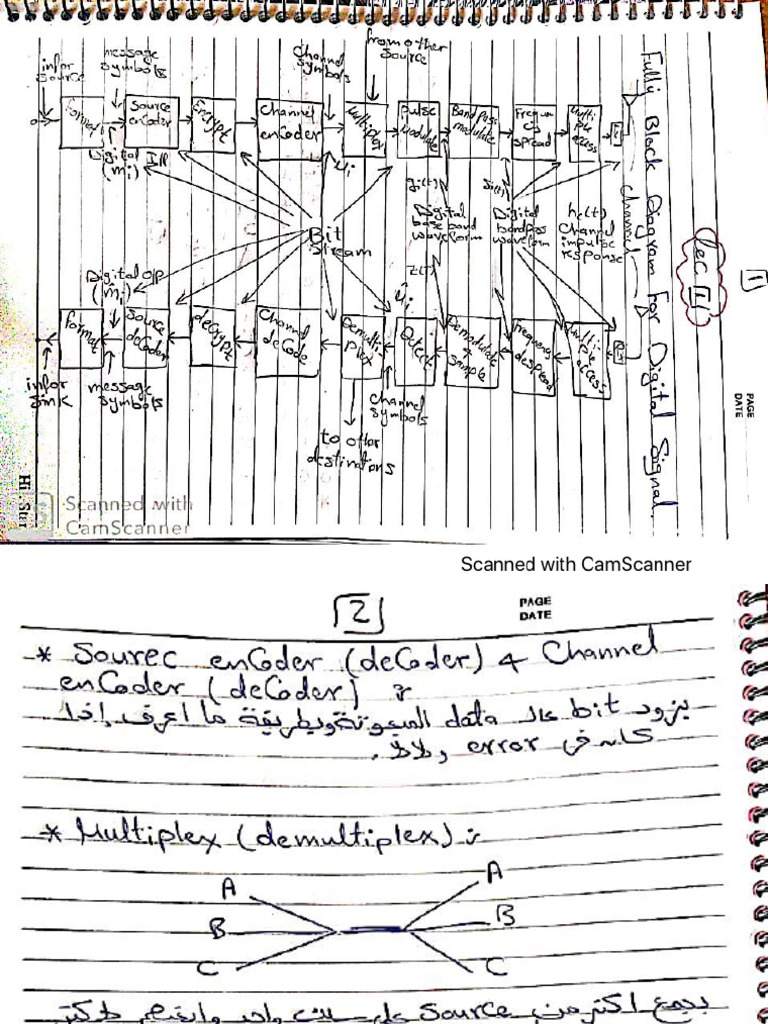 1
PAGE
DATE
Lec 1
Fully Block Diagram For Digital Signal.
Channel
from other
source
Channel
symbols
message
symbols
infor
source
Format
Source
enCoder
Encrypt
Channel
enCoder
Multiplex
Pulse
modulate
Band pass
modulate
Frequency
spread
multiple
access
Digital I/P
(mi)
ui
Bit
stream
gi(t)
Digital
base band
waveform
si(t)
Digital
bandpass
waveform
hc(t)
Channel
impulse
response
z(t)
ûi
Digital O/P
(m̂i)
Format
Source
deCoder
deCrypt
Channel
deCode
Demultiplex
Detect
Demodulate
& sample
Frequency
despread
multiple
access
infor
sink
message
symbols
Channel
symbols
to other
destinations
CS
Scanned with
CamScanner
Scanned with CamScanner
2
PAGE
DATE
* Sourec enCoder (deCoder) & Channel
enCoder (deCoder) :
بزود bit عالـ data المبعوتة وبطريقة ما اعرف إذا
كان في error ولا لا.
* Multiplex (demultiplex) :
A
A
B
B
C
C
بجمع اكتر من source على